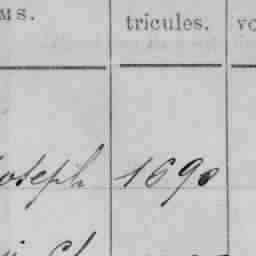 MS. tricules. vo
oseph 1690